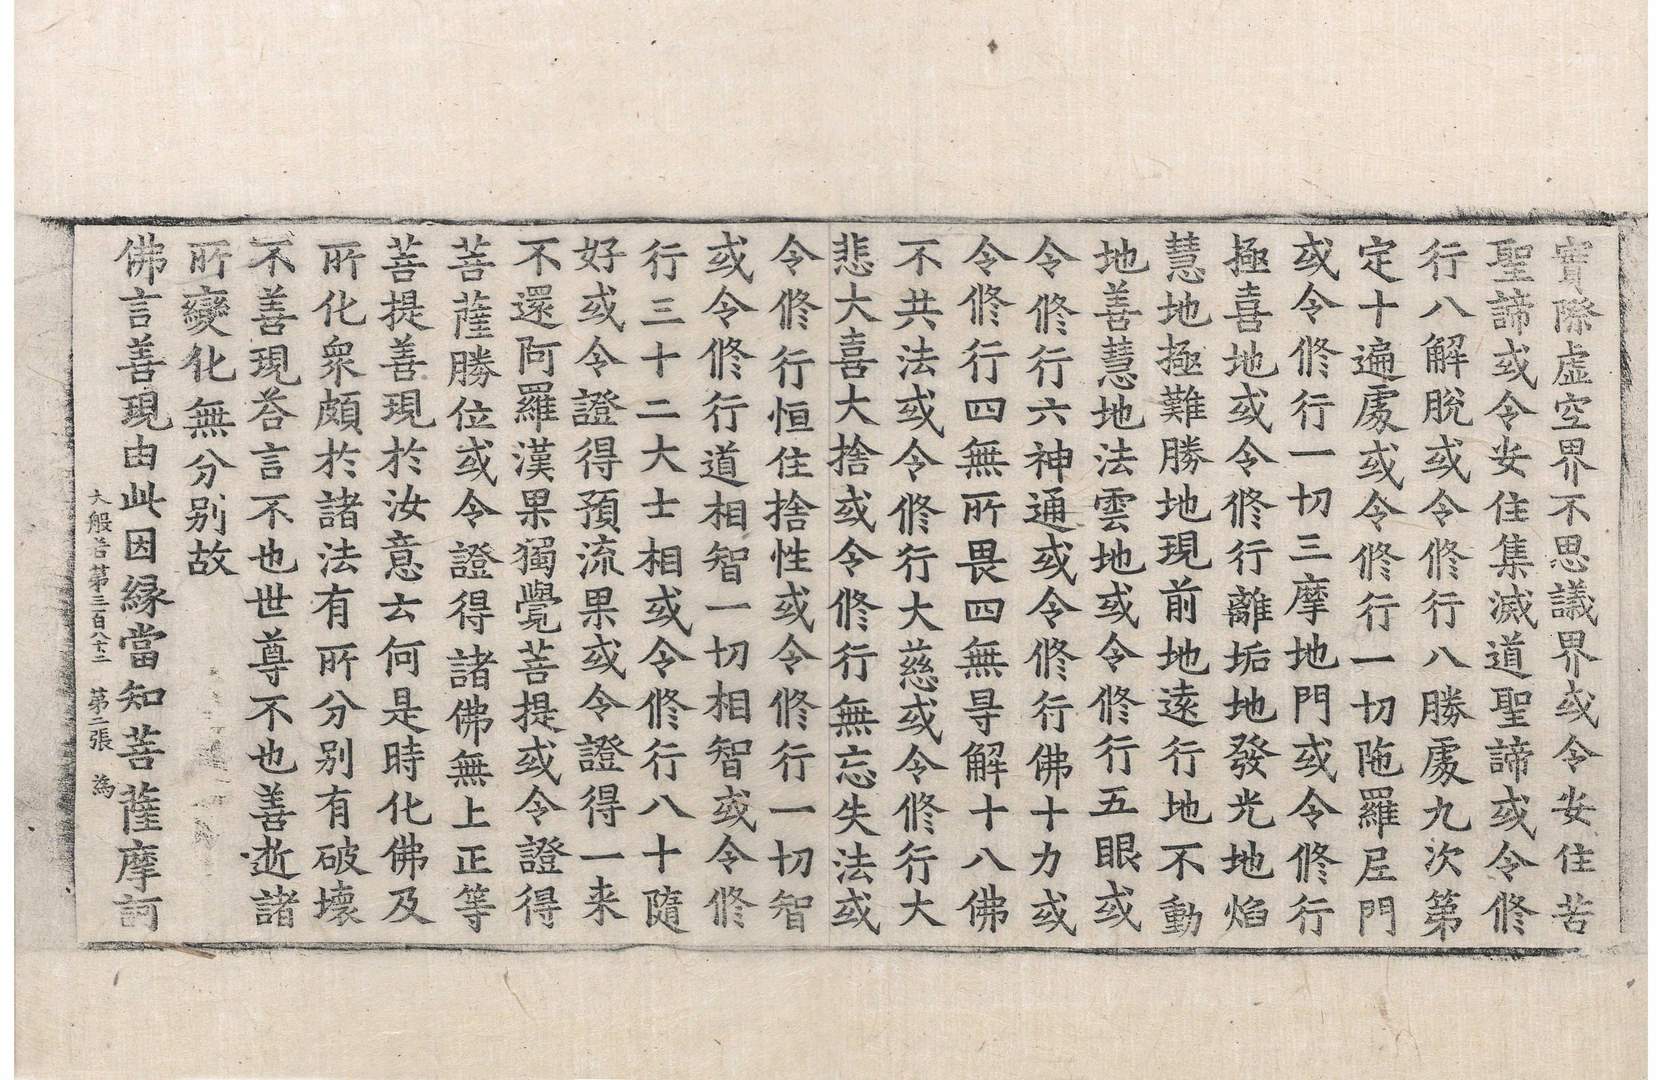 實際虛空界不思議界或令安住苦
聖諦或令安住集滅道聖諦或令修
行八解脫或令修行八勝處九次第
定十遍處或令修行一切陁羅尼門
或令修行一切三摩地門或令修行
極喜地或令修行離垢地發光地焰
慧地極難勝地現前地遠行地不動
地善慧地法雲地或令修行五眼或
令修行六神通或令修行佛十力或
令修行四無所畏四無㝵解十八佛
不共法或令修行大慈或令修行大
悲大喜大捨或令修行無忘失法或
令修行恒住捨性或令修行一切智
或令修行道相智一切相智或令修
行三十二大士相或令修行八十隨
好或令證得預流果或令證得一来
不還阿羅漢果獨覺菩提或令證得
菩薩勝位或令證得諸佛無上正等
菩提善現於汝意云何是時化佛及
所化衆頗於諸法有所分别有破壞
不善現荅言不也世尊不也善逝諸
所變化無分别故
佛言善現由此因縁當知菩薩摩訶
大般若第三百八十二 第二張 為